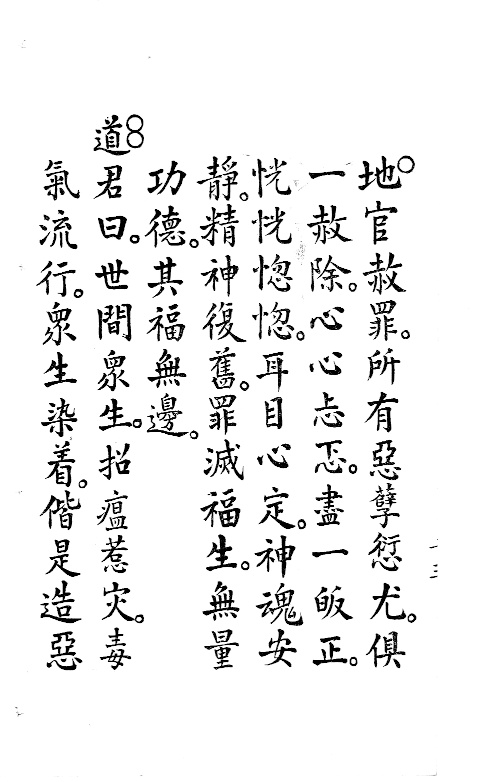 地官赦罪。所有惡孽愆尤。俱
一赦除。心心忐忑。盡一皈正。
恍恍惚惚。耳目心定。神魂安
靜。精神復舊。罪滅福生。無量
功德。其福無邊。
道君曰。世間衆生。招瘟惹灾。毒
氣流行。衆生染着。偕是造惡
十三